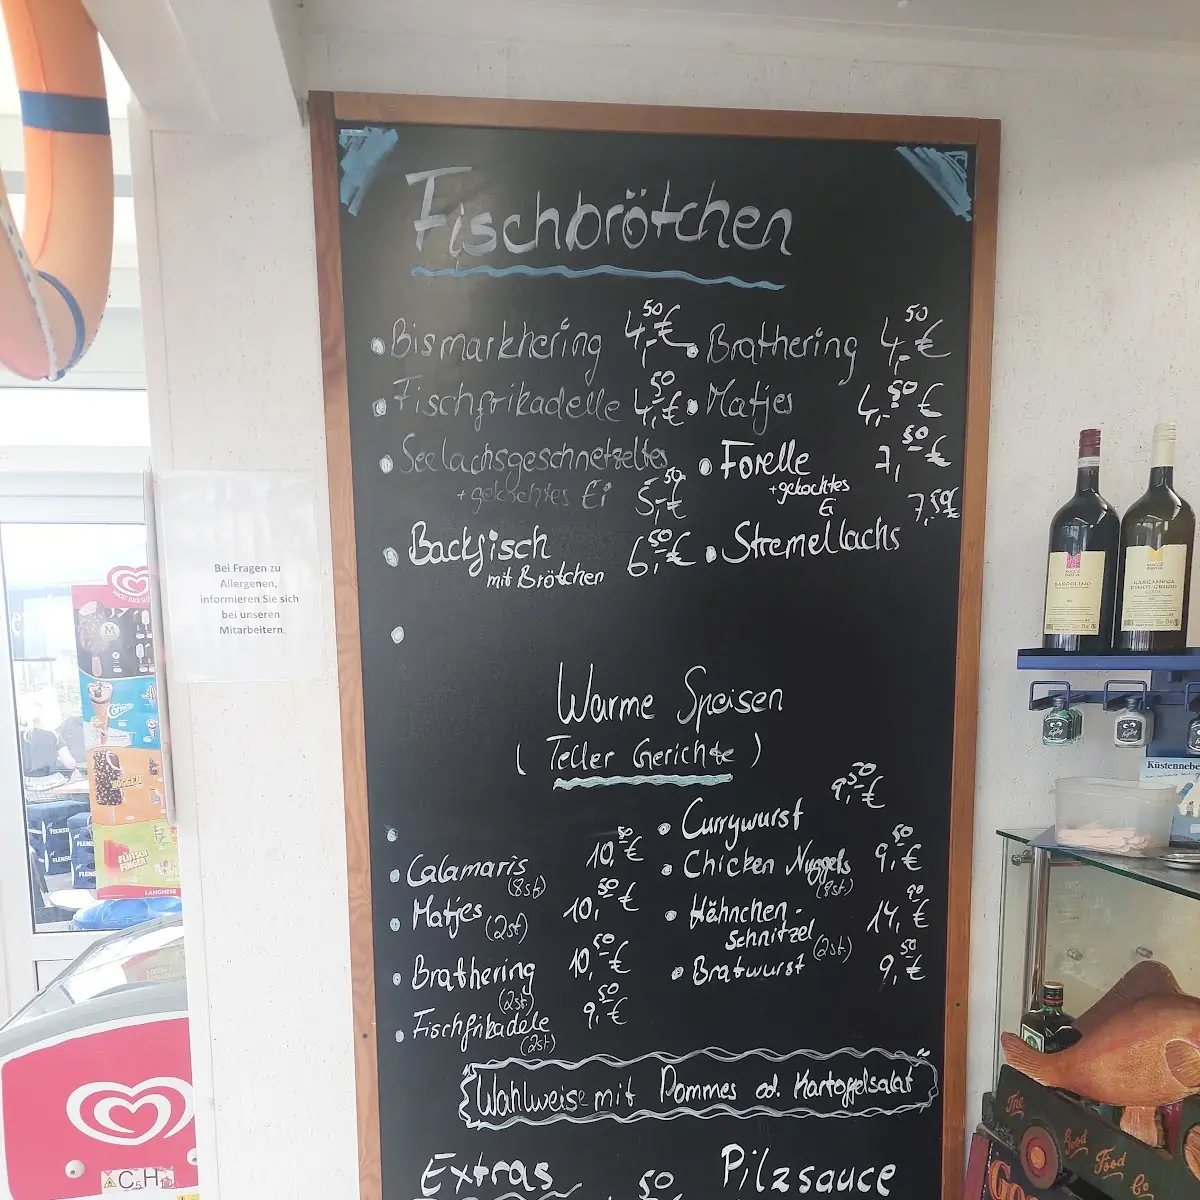 Fischbrötchen
Bismarkhering 4,50€
Brathering 4,50€
Fischfrikadelle 4,50€
Matjes 4,50€
Seelachsgeschnetzeltes
+gekochtes Ei 5,50€
Forelle 7,50€
+gekochtes
Ei
Backfisch 6,50€
mit Brötchen
Stremellachs 7,50€
Warme Speisen
(Teller Gerichte)
Calamaris 10,50€
(8st)
Matjes (2st) 10,50€
Brathering 10,50€
(2st)
Fischfrikadele 9,50€
(2st)
Currywurst 9,50€
Chicken Nuggets 9,50€
Hähnchen- 14,90€
Schnitzel (2st)
Bratwurst 9,50€
Wahlweise mit Pommes od. Kartoffelsalat
Extras
50
Pilzsauce
Bei Fragen zu
Allergenen,
informieren Sie sich
bei unseren
Mitarbeitern.
BARDOLINO
GARGANEGA
PINOT GRIGIO
Küstennebe
LANGNESE
The
Good
Food
Co
Go